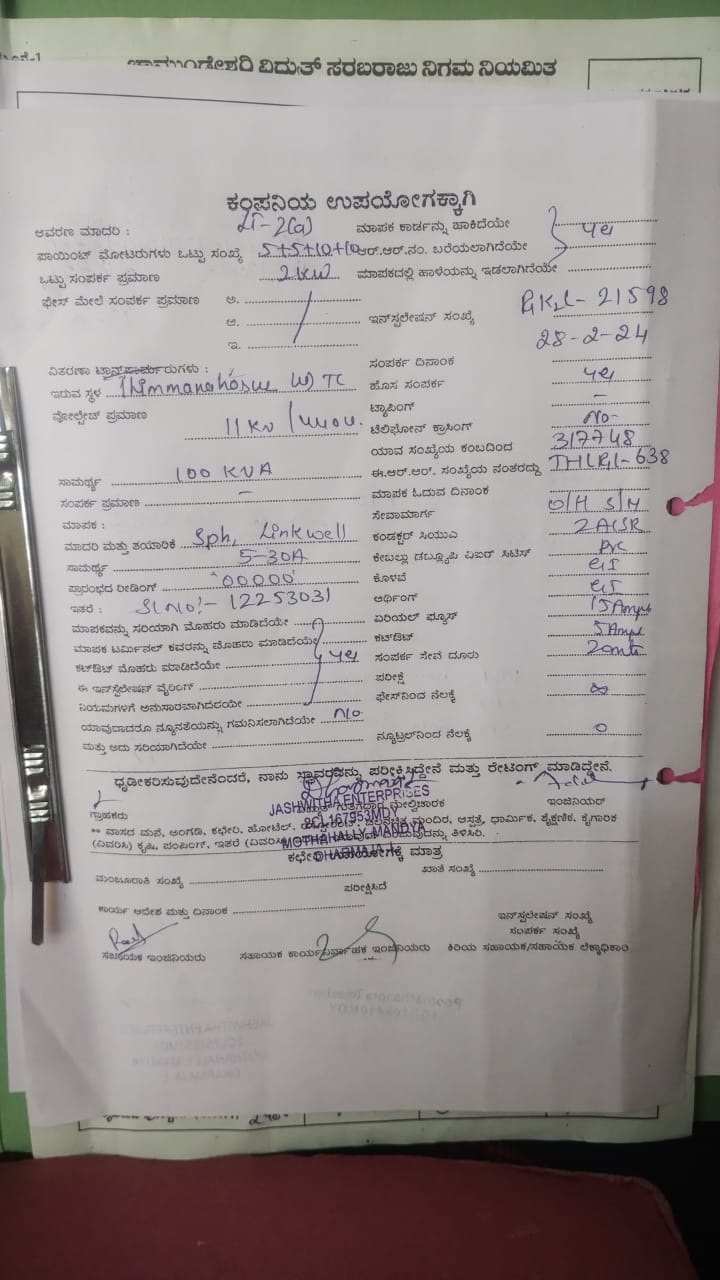 ವಿದ್ಯುತ್ ಸರಬರಾಜು ನಿಗಮ ನಿಯಮಿತ
ಕಂಪನಿಯ ಉಪಯೋಗಕ್ಕಾಗಿ
ಆವರಣ ಮಾದರಿ : LT-2(a) ಮಾಪಕ ಕಾರ್ಡನ್ನು ಹಾಕಿದೆಯೇ yes
ಪಾಯಿಂಟ್ ಮೋಟರುಗಳು ಒಟ್ಟು ಸಂಖ್ಯೆ 5+5+10+10 ಆರ್.ಆರ್.ನಂ. ಬರೆಯಲಾಗಿದೆಯೇ
ಒಟ್ಟು ಸಂಪರ್ಕ ಪ್ರಮಾಣ 2kW ಮಾಪಕದಲ್ಲಿ ಹಾಳೆಯನ್ನು ಇಡಲಾಗಿದೆಯೇ
ಫೇಸ್ ಮೇಲೆ ಸಂಪರ್ಕ ಪ್ರಮಾಣ ಅ.
ಆ. ಇನ್‌ಸ್ಟಲೇಷನ್ ಸಂಖ್ಯೆ 21598
ಇ. 28-2-24
ವಿತರಣಾ ಟ್ರಾನ್ಸ್‌ಫಾರ್ಮರುಗಳು : ಸಂಪರ್ಕ ದಿನಾಂಕ
ಇರುವ ಸ್ಥಳ TC ಹೊಸ ಸಂಪರ್ಕ yes
ವೋಲ್ಟೇಜ್ ಪ್ರಮಾಣ 11KV / 440V. ಟ್ಯಾಪಿಂಗ್ -
ಟೆಲಿಫೋನ್ ಕ್ರಾಸಿಂಗ್ No-
ಯಾವ ಸಂಖ್ಯೆಯ ಕಂಬದಿಂದ 317748
ಸಾಮರ್ಥ್ಯ 100 KVA ಈ.ಆರ್.ಆರ್. ಸಂಖ್ಯೆಯ ನಂತರದ್ದು
ಸಂಪರ್ಕ ಪ್ರಮಾಣ - ಮಾಪಕ ಓದುವ ದಿನಾಂಕ
ಮಾಪಕ : ಸೇವಾಮಾರ್ಗ O/H S/M
ಮಾದರಿ ಮತ್ತು ತಯಾರಿಕೆ Sph, Linkwell ಕಂಡಕ್ಟರ್ ಸಿಯುಎ 2 ACSR
ಸಾಮರ್ಥ್ಯ 5-30A ಕೇಬಲ್ಲು ಡಬ್ಲ್ಯೂಪಿ ಏಐರ್ ಸಿಟಿಸ್ PVC
ಪ್ರಾರಂಭದ ರೀಡಿಂಗ್ '00000' ಕೊಳವೆ GI
ಇತರೆ : Sl No:- 12253031 ಅರ್ಥಿಂಗ್ GI
ಮಾಪಕವನ್ನು ಸರಿಯಾಗಿ ಮೊಹರು ಮಾಡಿದೆಯೇ ಏರಿಯಲ್ ಫ್ಯೂಸ್ 15 Amps
ಮಾಪಕ ಟರ್ಮಿನಲ್ ಕವರನ್ನು ಮೊಹರು ಮಾಡಿದೆಯೇ ಕಟ್‌ಔಟ್ 5 Amps
ಕಟ್‌ಔಟ್ ಮೊಹರು ಮಾಡಿದೆಯೇ yes ಸಂಪರ್ಕ ಸೇವೆ ದೂರು 20mts
ಈ ಇನ್‌ಸ್ಟಲೇಷನ್ ವೈರಿಂಗ್ ಪರೀಕ್ಷೆ
ನಿಯಮಗಳಿಗೆ ಅನುಸಾರವಾಗಿದೆಯೇ ಫೇಸ್‌ನಿಂದ ನೆಲಕ್ಕೆ ∞
ಯಾವುದಾದರೂ ನ್ಯೂನತೆಯನ್ನು ಗಮನಿಸಲಾಗಿದೆಯೇ No.
ಮತ್ತು ಅದು ಸರಿಯಾಗಿದೆಯೇ ನ್ಯೂಟ್ರಲ್‌ನಿಂದ ನೆಲಕ್ಕೆ 0
ಧೃಡೀಕರಿಸುವುದೇನೆಂದರೆ, ನಾನು ಸ್ಥಾವರವನ್ನು ಪರೀಕ್ಷಿಸಿದ್ದೇನೆ ಮತ್ತು ರೇಟಿಂಗ್ ಮಾಡಿದ್ದೇನೆ.
JASHWITHA ENTERPRISES
ಗ್ರಾಹಕರು ಮೇಲ್ವಿಚಾರಕ ಇಂಜಿನಿಯರ್
2CL167953MDY
** ವಾಸದ ಮನೆ, ಅಂಗಡಿ, ಕಛೇರಿ, ಹೋಟೆಲ್, ಮಂದಿರ, ಆಸ್ಪತ್ರೆ, ಧಾರ್ಮಿಕ, ಶೈಕ್ಷಣಿಕ, ಕೈಗಾರಿಕ
(ವಿವರಿಸಿ) ಕೃಷಿ, ಪಂಪಿಂಗ್. ಇತರೆ ತಿಳಿಸಿರಿ.
MOTHAHALLY, MANDYA
ಮಾತ್ರ
ಮಂಜೂರಾತಿ ಸಂಖ್ಯೆ ಖಾತೆ ಸಂಖ್ಯೆ
ಪರೀಕ್ಷಿಸಿದೆ
ಕಾರ್ಯ ಆದೇಶ ಮತ್ತು ದಿನಾಂಕ ಇನ್‌ಸ್ಟಲೇಷನ್ ಸಂಖ್ಯೆ
ಸಂಪರ್ಕ ಸಂಖ್ಯೆ
ಸಹಾಯಕ ಇಂಜಿನಿಯರು ಸಹಾಯಕ ಕಾರ್ಯನಿರ್ವಾಹಕ ಇಂಜಿನಿಯರು ಕಿರಿಯ ಸಹಾಯಕ/ಸಹಾಯಕ ಲೆಕ್ಕಾಧಿಕಾರಿ